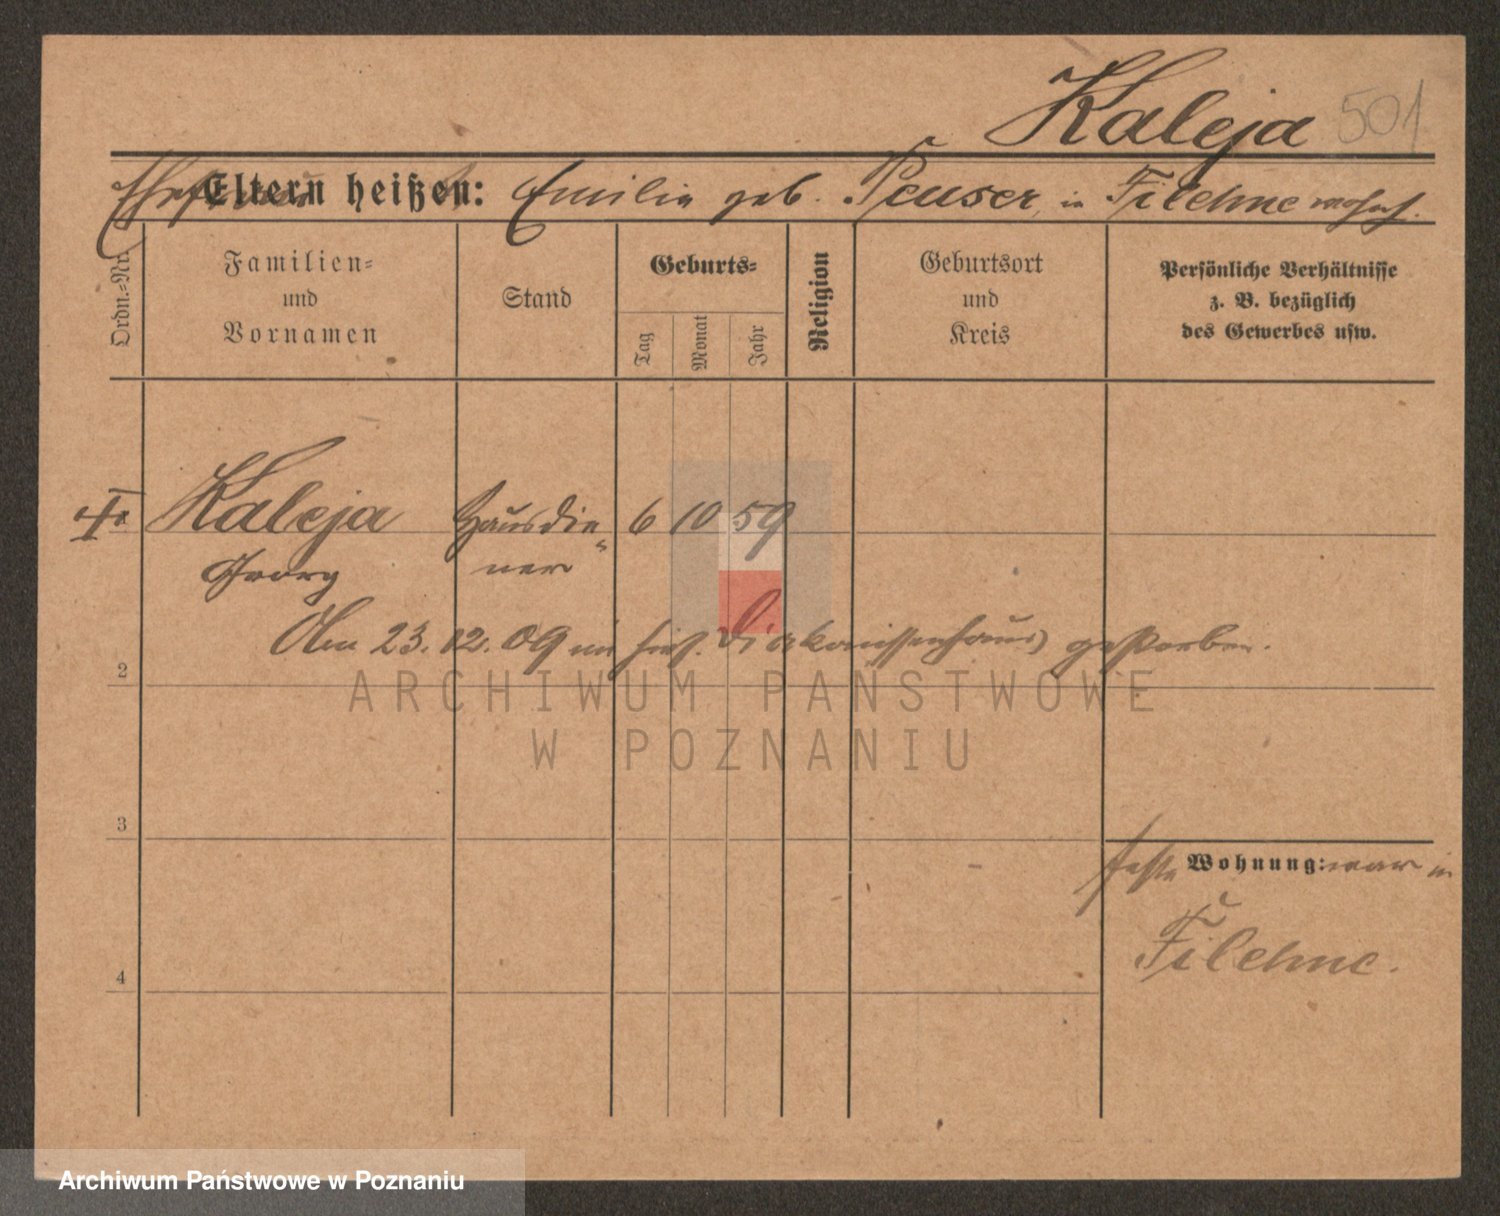 Kaleja 501
Ehefrau Eltern heißen: Emilie geb. Peuser, in Filehne wohnh.
Ordn.-Nr.
Familien-
und
Vornamen
Stand
Geburts-
Tag
Monat
Jahr
Religion
Geburtsort
und
Kreis
Persönliche Verhältnisse
z. B. bezüglich
des Gewerbes usw.
Kaleja Hausdie- 6 10 59
Georg ner
Am 23.12.09 im hies. Diakonissenhaus gestorben.
2
ARCHIWUM PAŃSTWOWE
W POZNANIU
3
feste Wohnung: war in
Filehne.
4
Archiwum Państwowe w Poznaniu